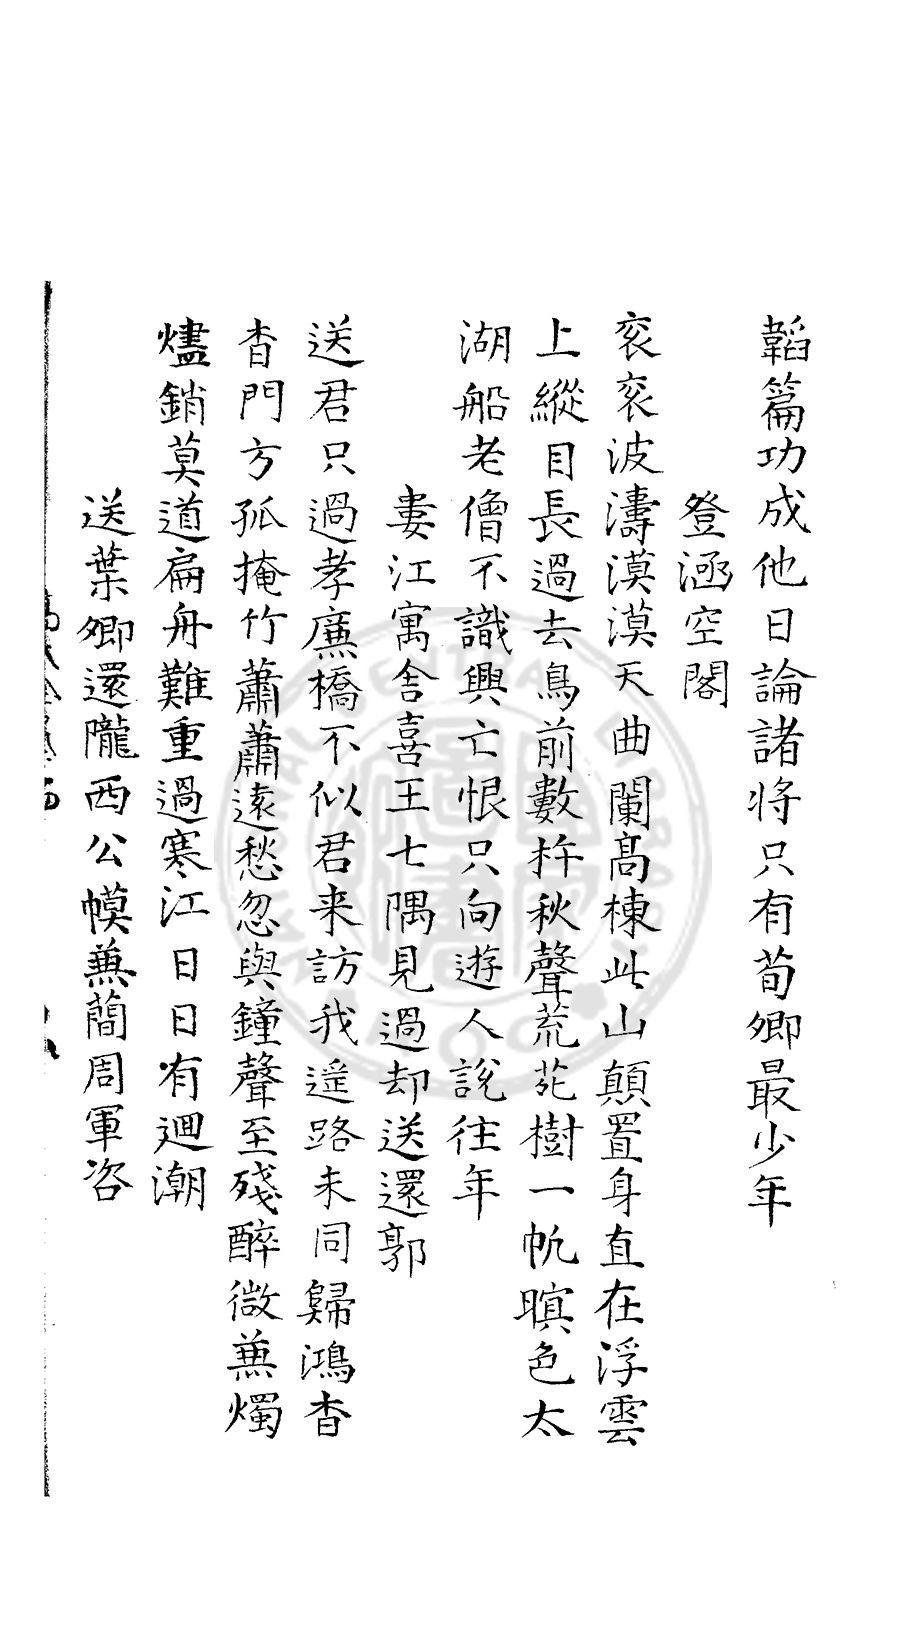 韜篇功成他日論諸将只有荀卿最少年
登涵空閣
衮衮波濤漠漠天曲闌髙棟此山顛置身直在浮雲
上縱目長過去鳥前數杵秋聲荒苑樹一帆暝色太
湖船老僧不識興亡恨只向遊人說往年
婁江寓舍喜王七隅見過却送還郭
送君只過孝廉橋不似君来訪我遥路未同歸鴻杳
杳門方孤掩竹蕭蕭遠愁忽與鐘聲至殘醉微兼燭
燼銷莫道扁舟難重過寒江日日有迴潮
送葉卿還隴西公幙兼蕳周軍咨